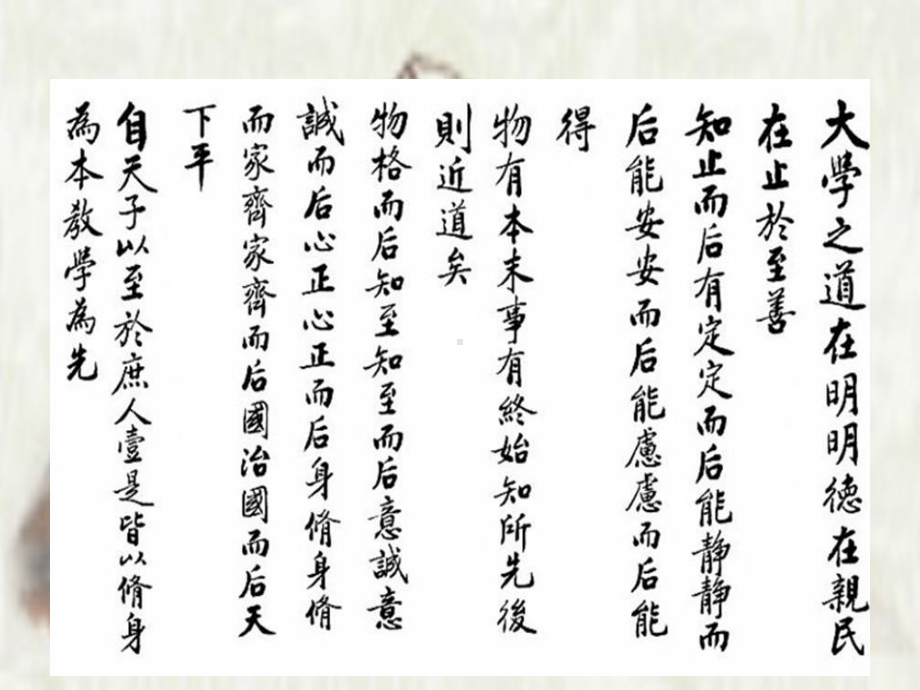 大學之道在明明德在親民
在止於至善
知止而后有定定而后能静静而
后能安安而后能慮慮而后能
得
物有本末事有終始知所先後
則近道矣
物格而后知至知至而后意誠意
誠而后心正心正而后身脩身脩
而家齊家齊而后國治國而后天
下平
自天子以至於庶人壹是皆以脩身
為本教學為先